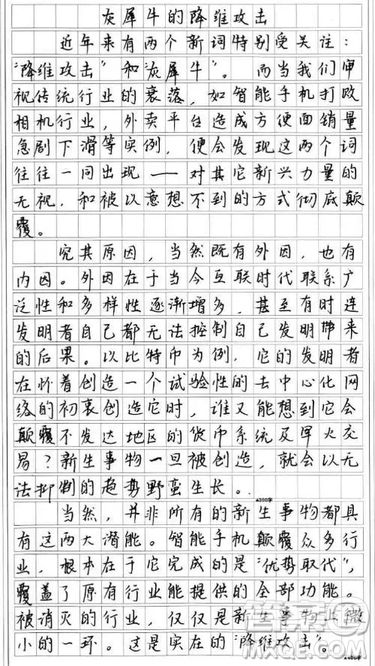 灰犀牛的降维攻击
近年来有两个新词特别受关注：
“降维攻击”和“灰犀牛”。而当我们审
视传统行业的衰落，如智能手机打败
相机行业，外卖平台造成方便面销量
急剧下滑等实例，便会发现这两个词
往往一同出现——对其它新兴力量的
无视，和被以意想不到的方式彻底颠
覆。
究其原因，当然既有外因，也有
内因。外因在于当今互联时代联系广
泛性和多样性逐渐增多，甚至有时连
发明者自己都无法控制自己发明带来
的后果。以比特币为例，它的发明者
在怀着创造一个试验性的去中心化网
络的初衷创造它时，谁又能想到它会
颠覆不发达地区的货币系统及军火交
易？新生事物一旦被创造，就会以无
法抑制的趋势野蛮生长。
当然，并非所有的新生事物都具
有这两大潜能。智能手机颠覆众多行
业，根本在于它完成的是“优势取代”，
覆盖了原有行业能提供的全部功能。
被消灭的行业，仅仅是新生事物上微
小的一环。这是实在的“降维攻击”。